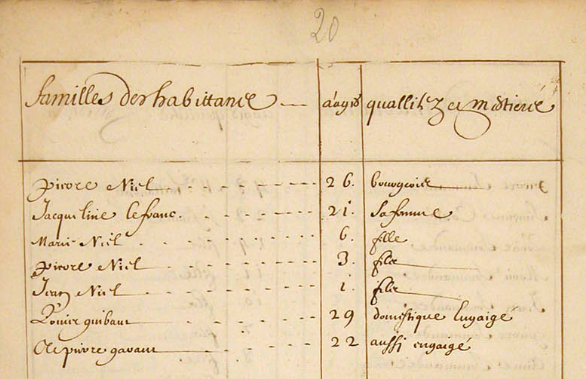 20
familles des habittants aagé quallitez et mestiers
pierre Niel 26. bourgeois
Jacqueline lefranc. 21. sa femme
Marie Niel 6. fille
pierre Niel 3. filz
Jean Niel 1. filz
Louis guibaut 29 domestique Engaigé
pierre gavant 22 aussi engaigé